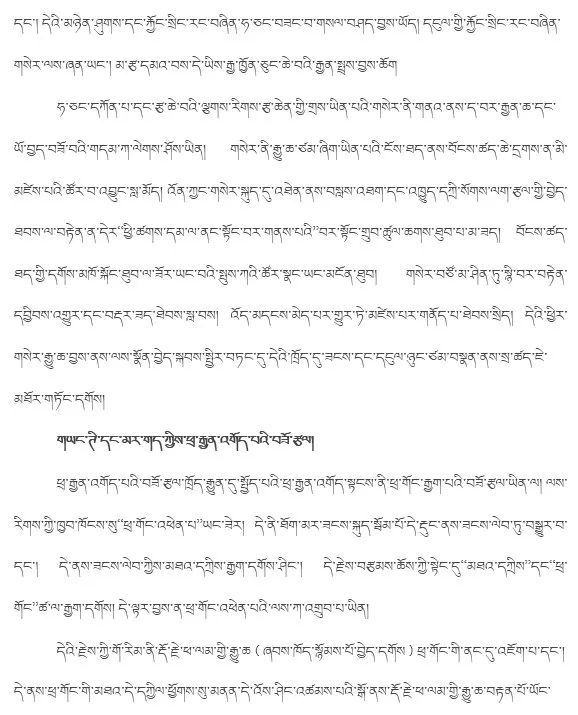 དང་། དེའི་མཉེན་ཤུགས་དང་རྐྱོང་སྲིང་རང་བཞིན་ཧ་ཅང་བཟང་བ་གསལ་བཤད་བྱས་ཡོད། དངུལ་གྱི་རྐྱོང་སྲིང་རང་བཞིན་
གསེར་ལས་ཞན་ཡང་། མ་རྩ་དམའ་བས་དེ་ཡིས་རྒྱ་ཁྱོན་ཅུང་ཆེ་བའི་རྒྱན་སྤྲས་བྱས་ཆོག
ཧ་ཅང་དཀོན་པ་དང་རྩ་ཆེ་བའི་ལྕགས་རིགས་རྩ་ཆེན་གྱི་གྲས་ཡིན་པའི་གསེར་ནི་གནའ་ནས་ད་བར་རྒྱན་ཆ་དང་
ཡོ་བྱད་བཟོ་བའི་གདམ་ཀ་ལེགས་ཤོས་ཡིན། གསེར་ནི་རྒྱུ་ཆ་ཙམ་ཞིག་ཡིན་པའི་ངོས་ཐད་ནས་བོངས་ཚད་ཆེ་དྲགས་ན་མི་
མཛེས་པའི་ཚོར་བ་འབྱུང་སླ་མོད། འོན་ཀྱང་གསེར་སྐུད་དུ་འཐེན་ནས་བསླས་འཐག་དང་འཁྱུད་དཀྲི་སོགས་ལག་རྩལ་གྱི་བྱེད་
ཐབས་ལ་བརྟེན་ན་དེར“ཕྱི་ཚགས་དམ་ལ་ནང་སྟོང་བར་གནས་པའི”བར་སྟོང་གྲུབ་ཚུལ་ཆགས་ཐུབ་པ་མ་ཟད། བོངས་ཚད་
ཐད་ཀྱི་དགོས་མཁོ་སྐོང་ཐུབ་ལ་ཟོར་ཡང་བའི་སྤུས་ཀའི་ཚོར་སྣང་ཡང་མངོན་ཐུབ། གསེར་བཙོ་མ་ཤིན་ཏུ་སྙི་བར་བརྟེན་
དབྱིབས་འགྱུར་དང་བརྡར་ཟད་ཐེབས་སླ་བས། འོད་མདངས་མེད་པར་གྱུར་ཏེ་མཛེས་པར་གནོད་པ་ཐེབས་སྲིད། དེའི་ཕྱིར་
གསེར་རྒྱུ་ཆ་བྱས་ནས་ལས་སྣོན་བྱེད་སྐབས་སྤྱིར་བཏང་དུ་དེའི་ཁྲོད་དུ་ཟངས་དང་དངུལ་ཉུང་ཙམ་བསྣན་ནས་སྲ་ཚད་ཇེ་
མཐོར་གཏོང་དགོས།
གཡང་ཊི་དང་མར་གད་ཀྱིས་ཕྲ་རྒྱན་འགོད་པའི་བཟོ་རྩལ།
ཕྲ་རྒྱན་འགོད་པའི་བཟོ་རྩལ་ཁྲོད་རྒྱུན་དུ་སྤྱོད་པའི་ཕྲ་རྒྱན་འགོད་སྟངས་ནི་ཕྲ་གོང་རྒྱག་པའི་བཟོ་རྩལ་ཡིན་ལ། ལས་
རིགས་ཀྱི་ཁྱབ་ཁོངས་སུ“ཕྲ་གོང་འཕེན་པ”ཡང་ཟེར། དེ་ནི་ཐོག་མར་ཟངས་སྐུད་སྦོམ་པོ་དེ་རྡུང་ནས་ཟངས་ལེབ་ཏུ་བསྒྱུར་བ་
དང་། དེ་ནས་ཟངས་ལེབ་ཀྱིས་མཐའ་དཀྲིས་རྒྱག་དགོས་ཤིང་། དེ་རྗེས་བརྩམས་ཆོས་ཀྱི་སྟེང་དུ“མཐའ་དཀྲིས”དང“ཕྲ་
གོང”ཚ་ལ་རྒྱག་དགོས། དེ་ལྟར་བྱས་ན་ཕྲ་གོང་འཕེན་པའི་ལས་ཀ་འགྲུབ་པ་ཡིན།
དེའི་རྗེས་ཀྱི་གོ་རིམ་ནི་རྡོ་རྗེ་ཕ་ལམ་གྱི་རྒྱུ་ཆ ( ཞབས་ཁོད་སྙོམས་པོ་བྱེད་དགོས ) ཕྲ་གོང་གི་ནང་དུ་འཇོག་པ་དང་།
དེ་ནས་ཕྲ་གོང་གི་མཐའ་དེ་དཀྱིལ་ཕྱོགས་སུ་མནན་དེ་འོས་ཤིང་འཚམས་པའི་སྒོ་ནས་རྡོ་རྗེ་ཕ་ལམ་གྱི་རྒྱུ་ཆ་བརྟན་པོ་ཡོང་